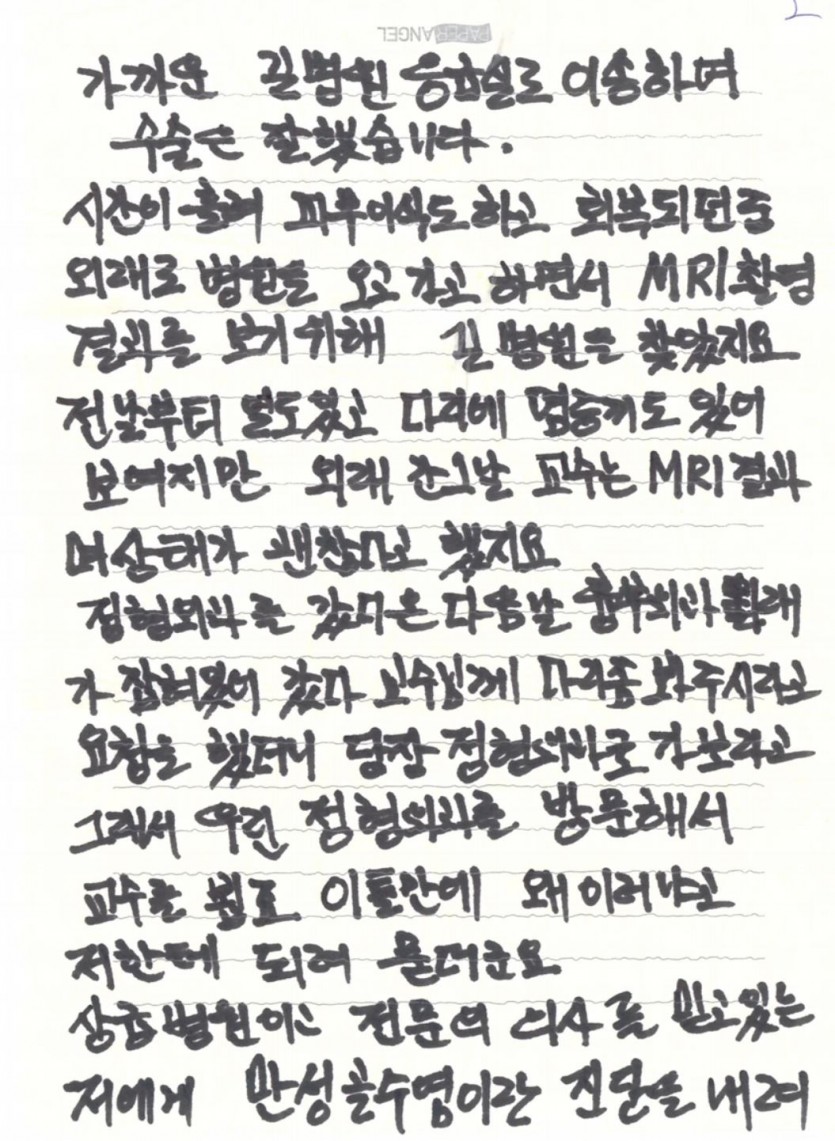 2
PAPERANGEL
가까운 길병원 응급실로 이송하며
수술은 잘했습니다.
시간이 흘러 피부이식도하고 회복되던중
외래로 병원을 오고가고 하면서 MRI촬영
결과를 보기위해 길병원을 찾았지요
전날부터 열도있고 다리에 멍증끼도 있어
보여지만 외래 간그날 교수는 MRI결과
며 상태가 괜찮다고 했지요
정형외과를 갔다온 다음날 흉부외과 외래
가 잡혀있어 갔다 교수님께 다리좀 봐주시라고
요청을 했더니 당장 정형외과로 가보라고
그래서 우린 정형외과를 방문해서
교수를 뵙고 이틀만에 왜 이러냐고
저한테 되려 묻더군요
상급병원이고 전문의 의사를 믿고있는
저에게 만성골수염이란 진단을 내려